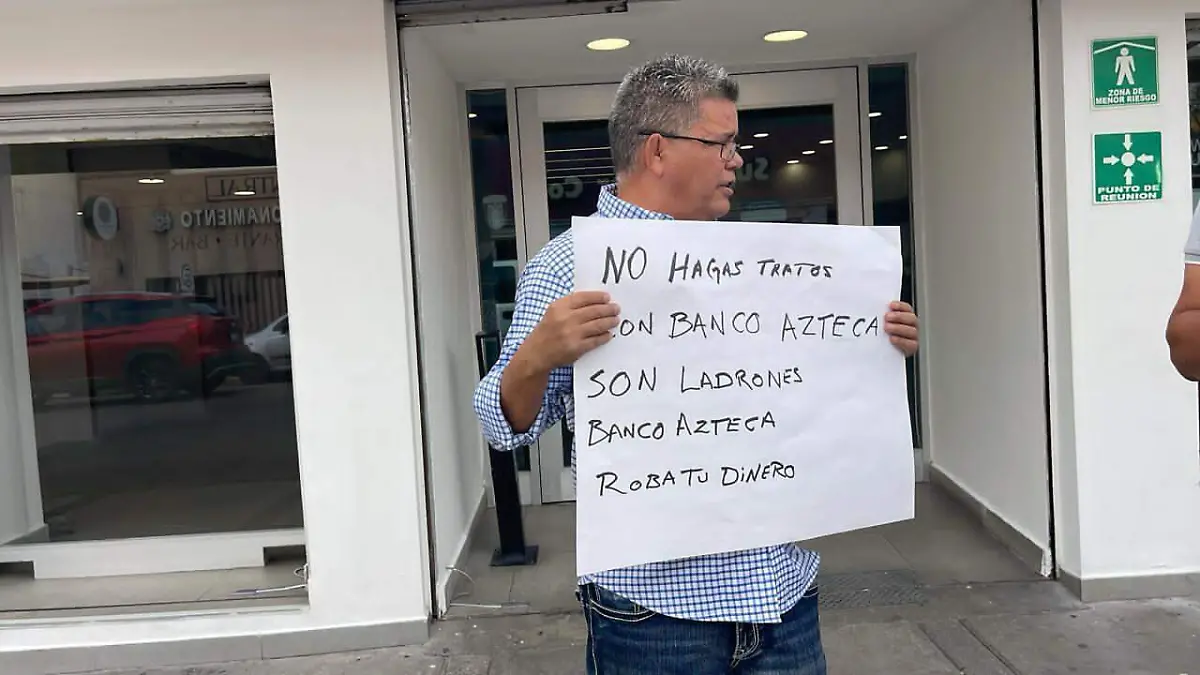 NO HAGAS TRATOS
CON BANCO AZTECA
SON LADRONES
BANCO AZTECA
ROBA TU DINERO
ZONA DE
MENOR RIESGO
PUNTO DE
REUNION